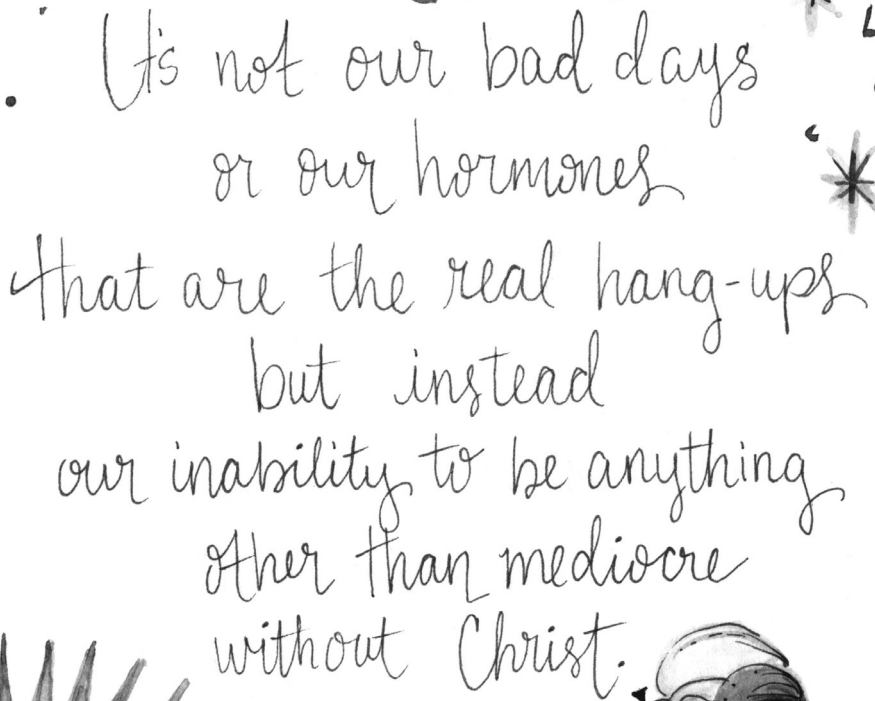 It's not our bad days
or our hormones
that are the real hang-ups
but instead
our inability to be anything
other than mediocre
without Christ.